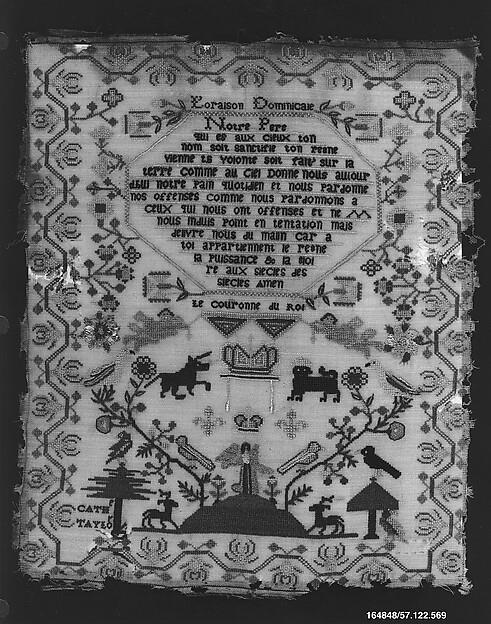 Loraison Dominicale
Notre Pere
qui es aux cieux ton
nom soit sanctifie ton regne
vienne ta volonte soit fait sur la
terre comme au ciel Donne nous aujour
dhui notre pain quotidien et nous pardonne
nos offenses comme nous pardonnons a
ceux qui nous ont offenses et ne
nous induis point en tentation mais
delivre nous du malin car a
toi appartiennent le regne
la puissance & la gloi
re aux siecles des
siecles amen
Le couronne du Roi
CATH
TAYLO
164848/57.122.569